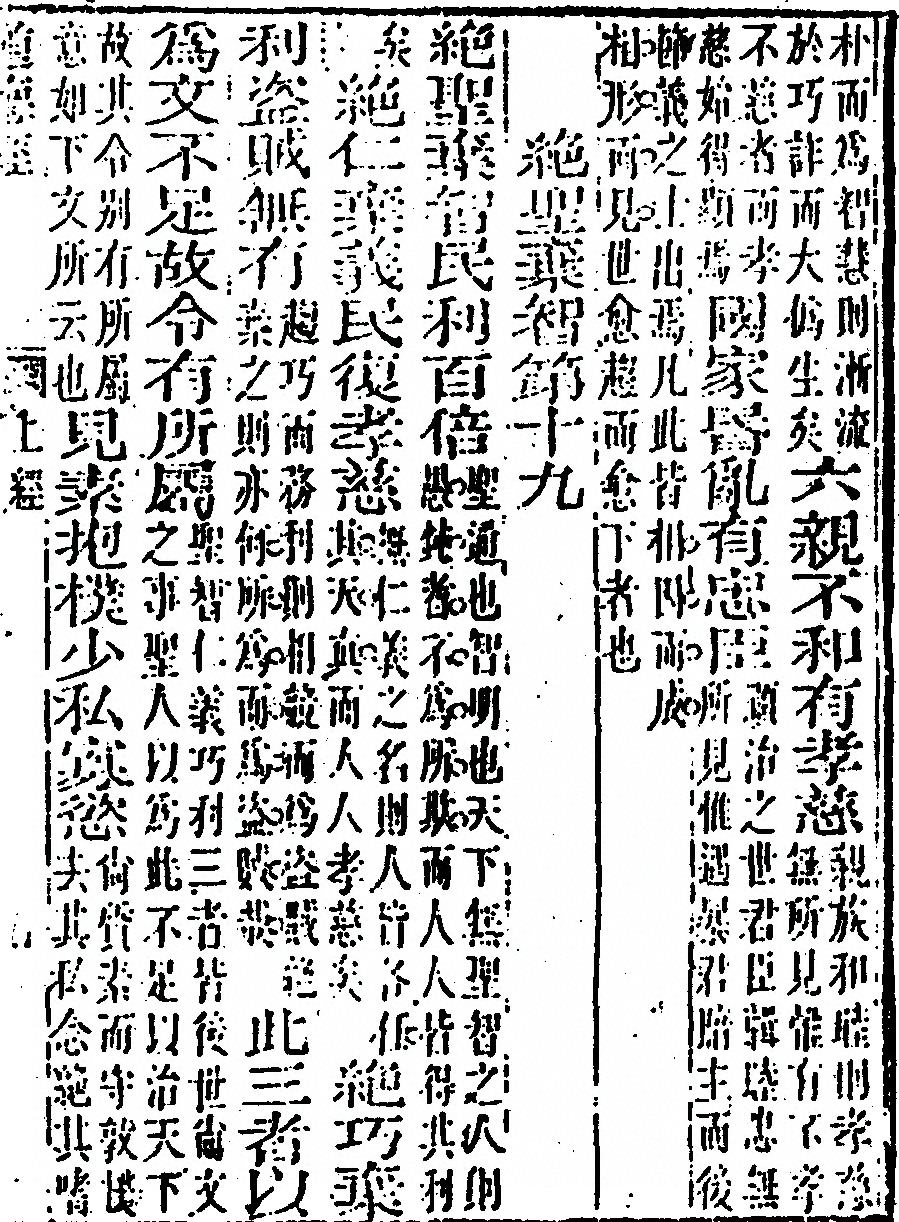 朴而為智慧則漸流
於巧詐而大偽生矣
六親不和有孝慈
親族和睦則孝慈
無所見惟有不孝
不慈者而孝
慈始得顯焉
國家昬亂有忠臣
治之世君臣輯睦忠無
所見惟遇暴君暗主而後
節義之士出焉凡此皆相因而成
相形而見世愈趨而愈下者也
絕聖棄智第十九
絕聖棄智民利百倍
聖通也智明也天下無聖智之人則
愚鈍者不為所欺而人人皆得其利
矣
絕仁棄義民復孝慈
無仁義之名則人皆各任
其天真而人人孝慈矣
絕巧棄
利盜賊無有
趨巧而務利則相競而為盜賊絕
棄之則亦何所為而為盜賊哉
此三者以
為文不足故令有所屬
聖智仁義巧利三者皆後世尚文
之事聖人以為此不足以治天下
故其令別有所屬
意如下文所云也
見素抱樸少私寡慾
尚質素而守敦樸
去其私念絕其嗜
上經